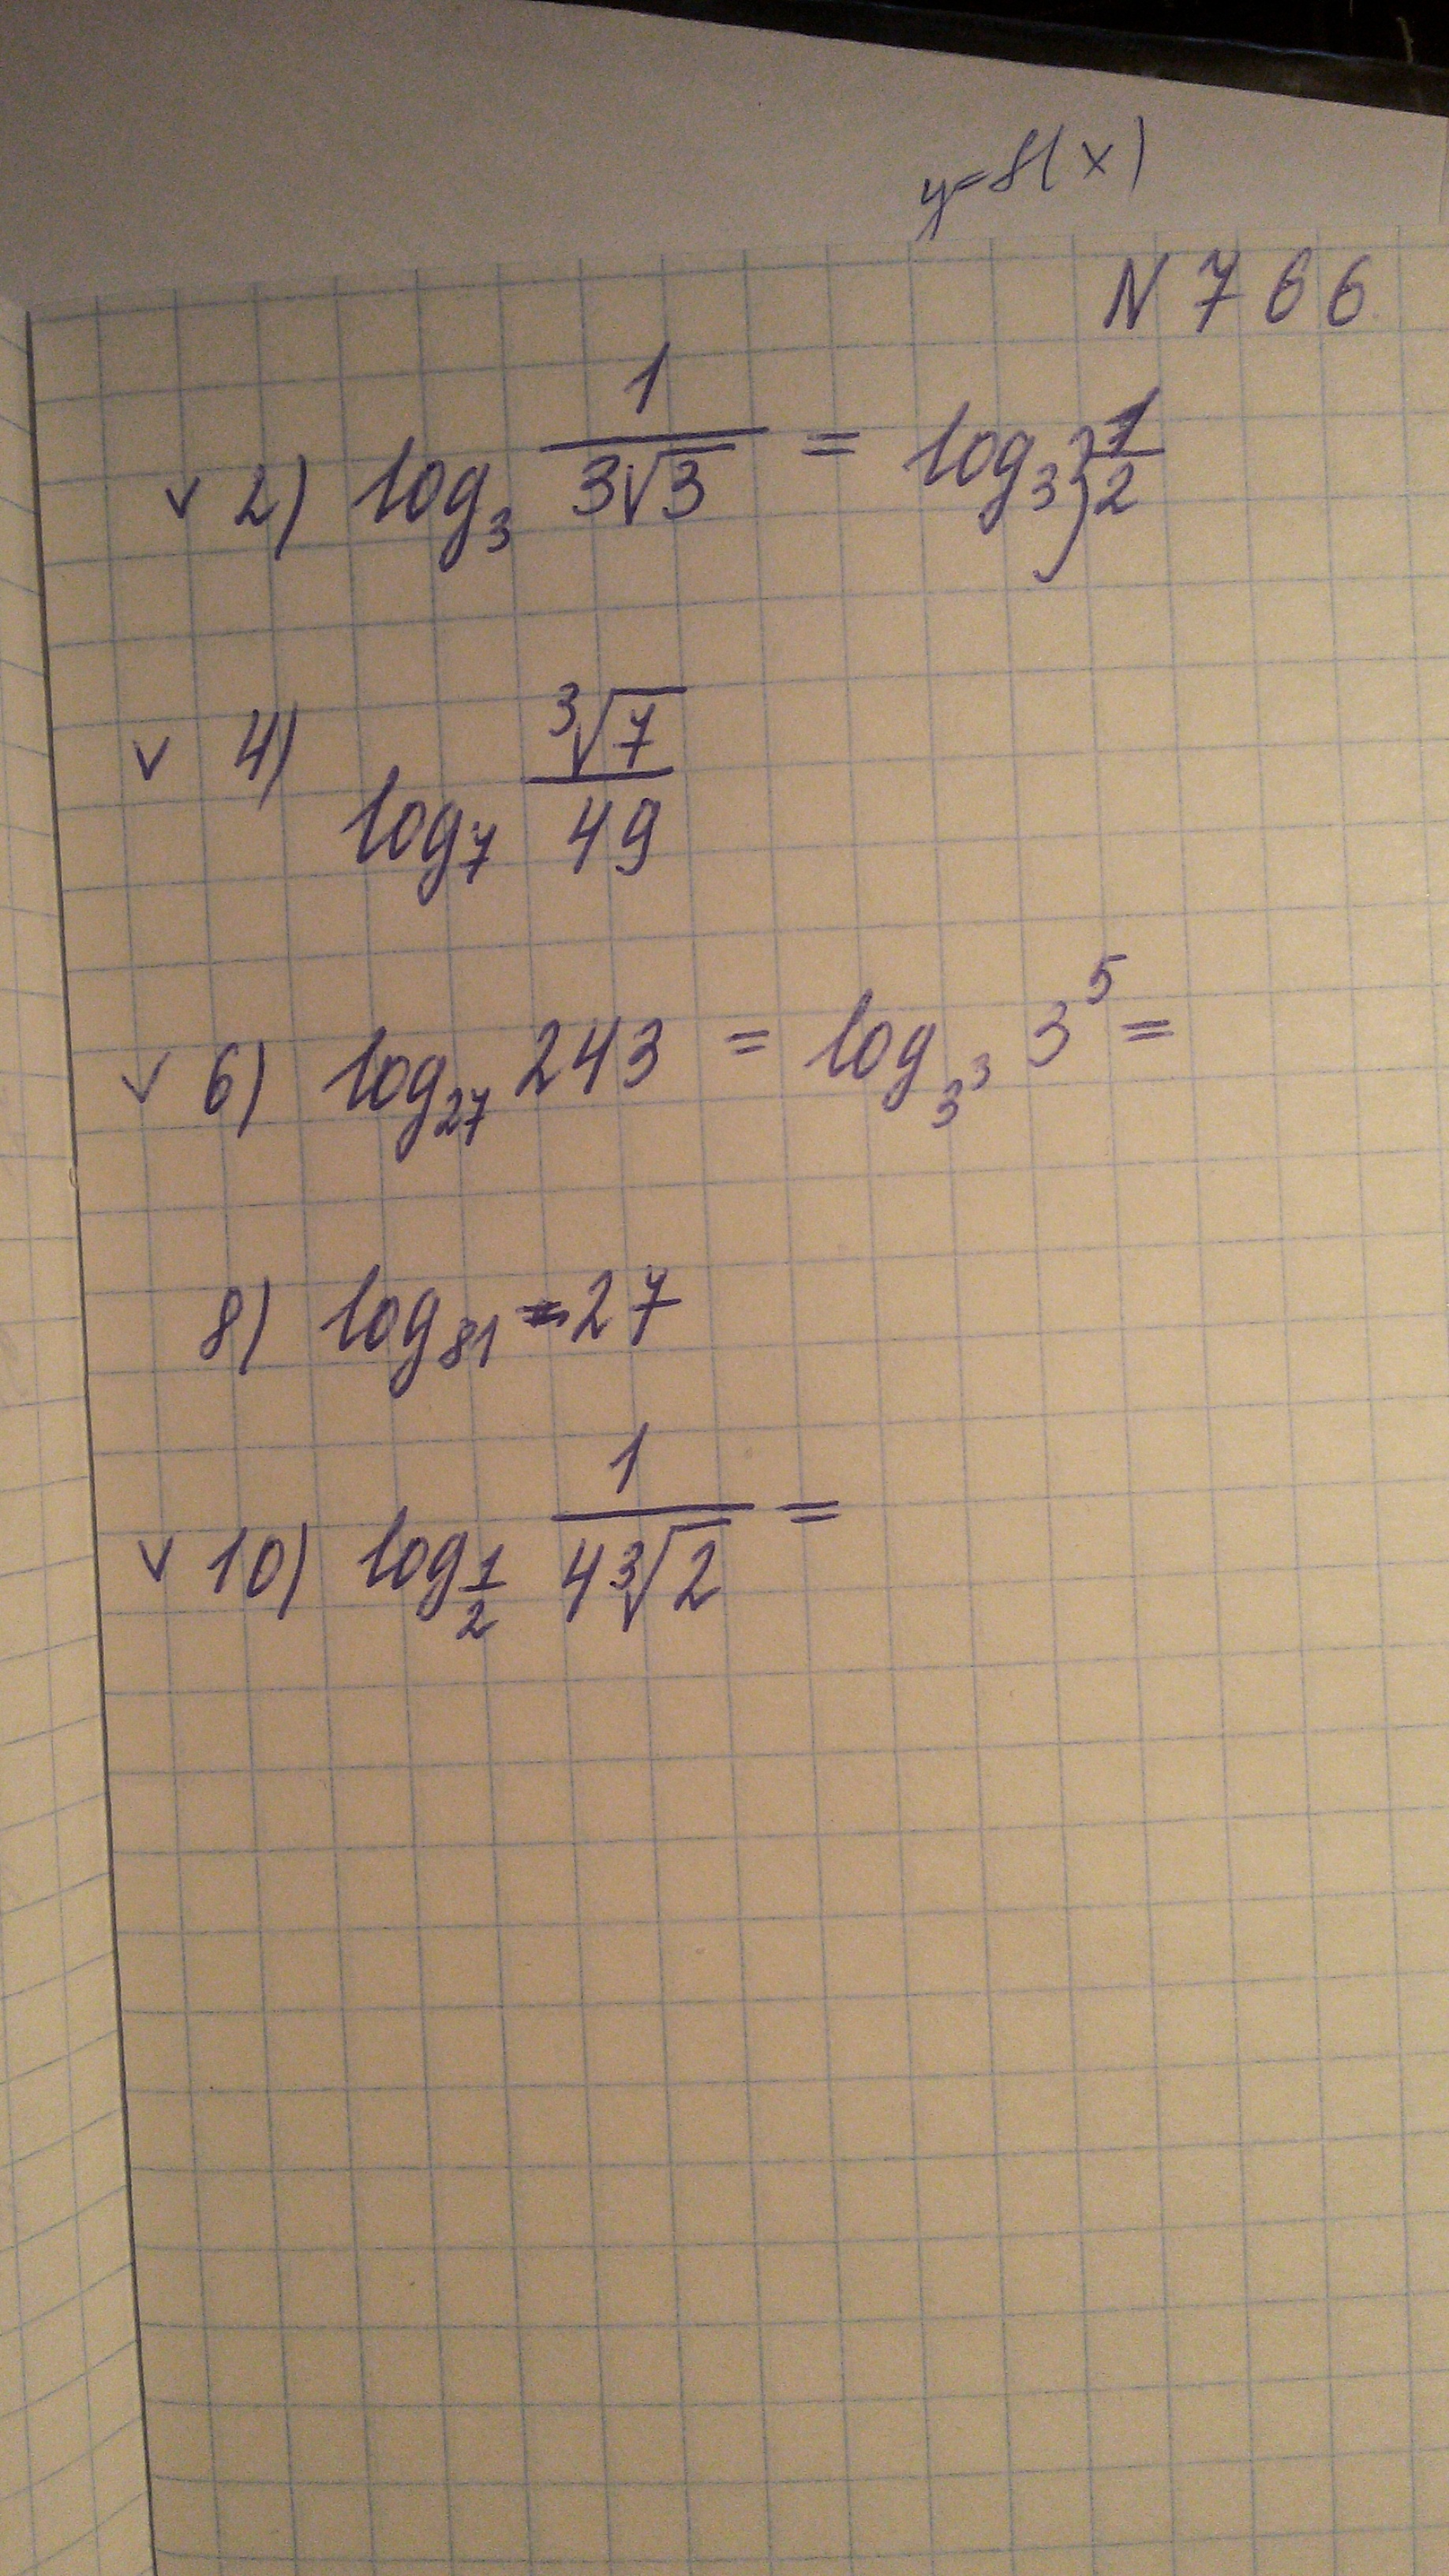 y=f(x)
N 766
v 2) log₃ 1/(3√3) = log₃ 3^(1/2)
v 4) log₇ ∛7/49
v 6) log₂₇ 243 = log_(3³) 3⁵ =
8) log₈₁ 27
v 10) log_(1/2) 1/(4∛2) =